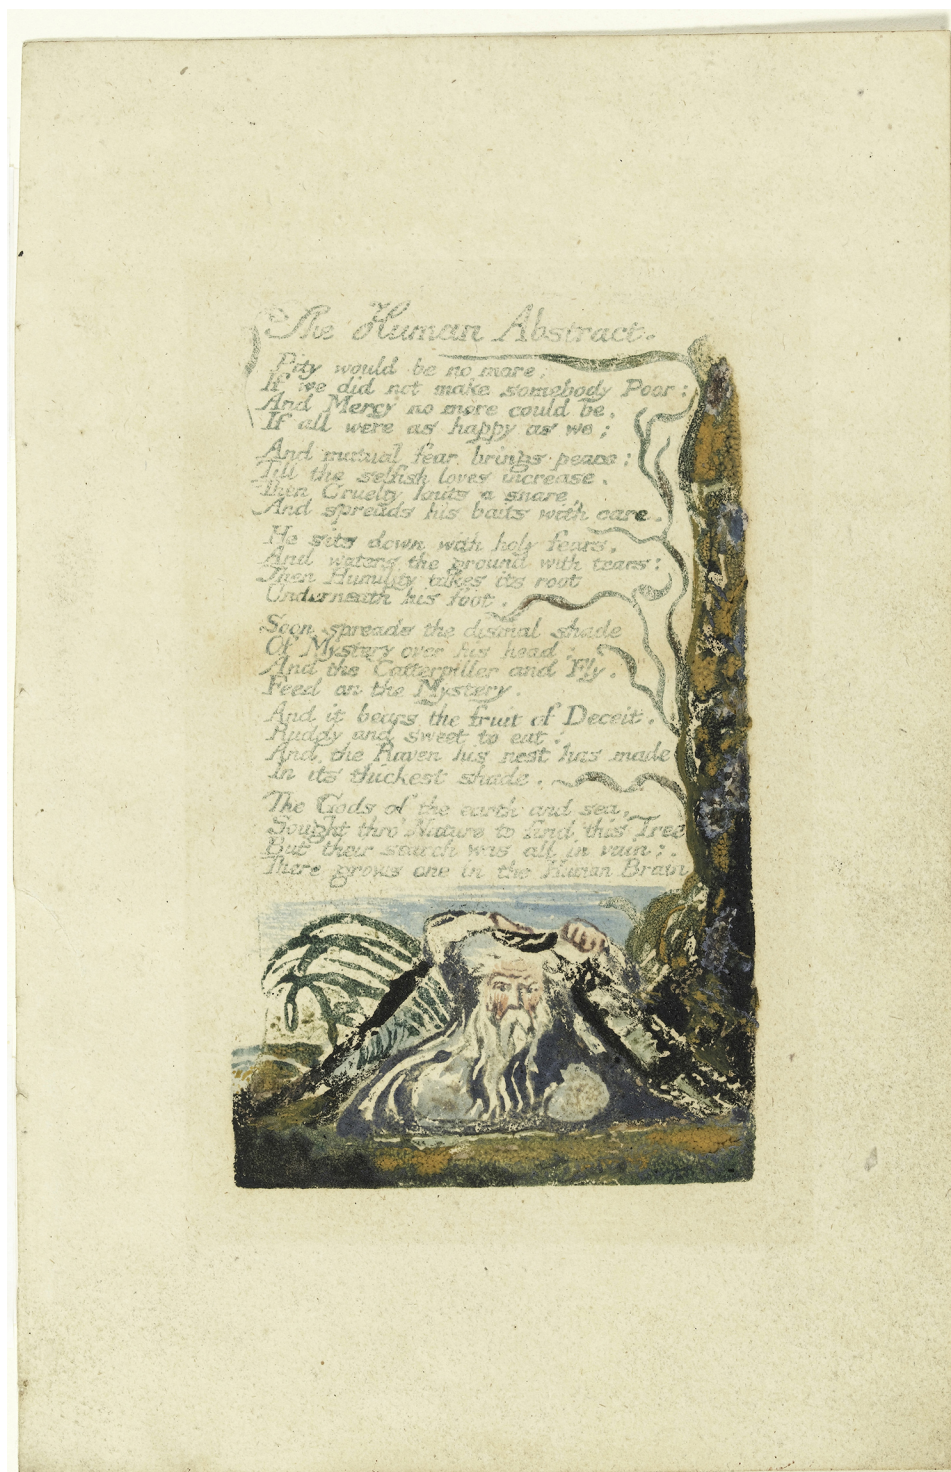 The Human Abstract.
Pity would be no more,
If we did not make somebody Poor:
And Mercy no more could be,
If all were as happy as we;
And mutual fear brings peace:
Till the selfish loves increase.
Then Cruelty knits a snare,
And spreads his baits with care.
He sits down with holy fears,
And waters the ground with tears:
Then Humility takes its root
Underneath his foot.
Soon spreads the dismal shade
Of Mystery over his head;
And the Catterpiller and Fly,
Feed on the Mystery.
And it bears the fruit of Deceit,
Ruddy and sweet to eat:
And the Raven his nest has made
In its thickest shade.
The Gods of the earth and sea,
Sought thro' Nature to find this Tree
But their search was all in vain:
There grows one in the Human Brain